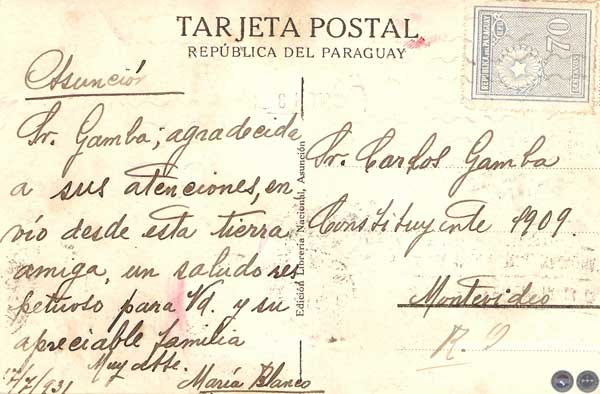 TARJETA POSTAL
REPÚBLICA DEL PARAGUAY
REPUBLICA DEL PARAGUAY
70
CENTAVOS
Asunción
Sr. Gamba; agradecida
a sus atenciones, en
vío desde esta tierra
amiga, un saludo res
petuoso para Vd. y su
apreciable familia
Muy atte.
María Blanco
17/7/931
Edición Librería Nacional, Asunción
Sr. Carlos Gamba
Constituyente 1909.
Montevideo
R. O